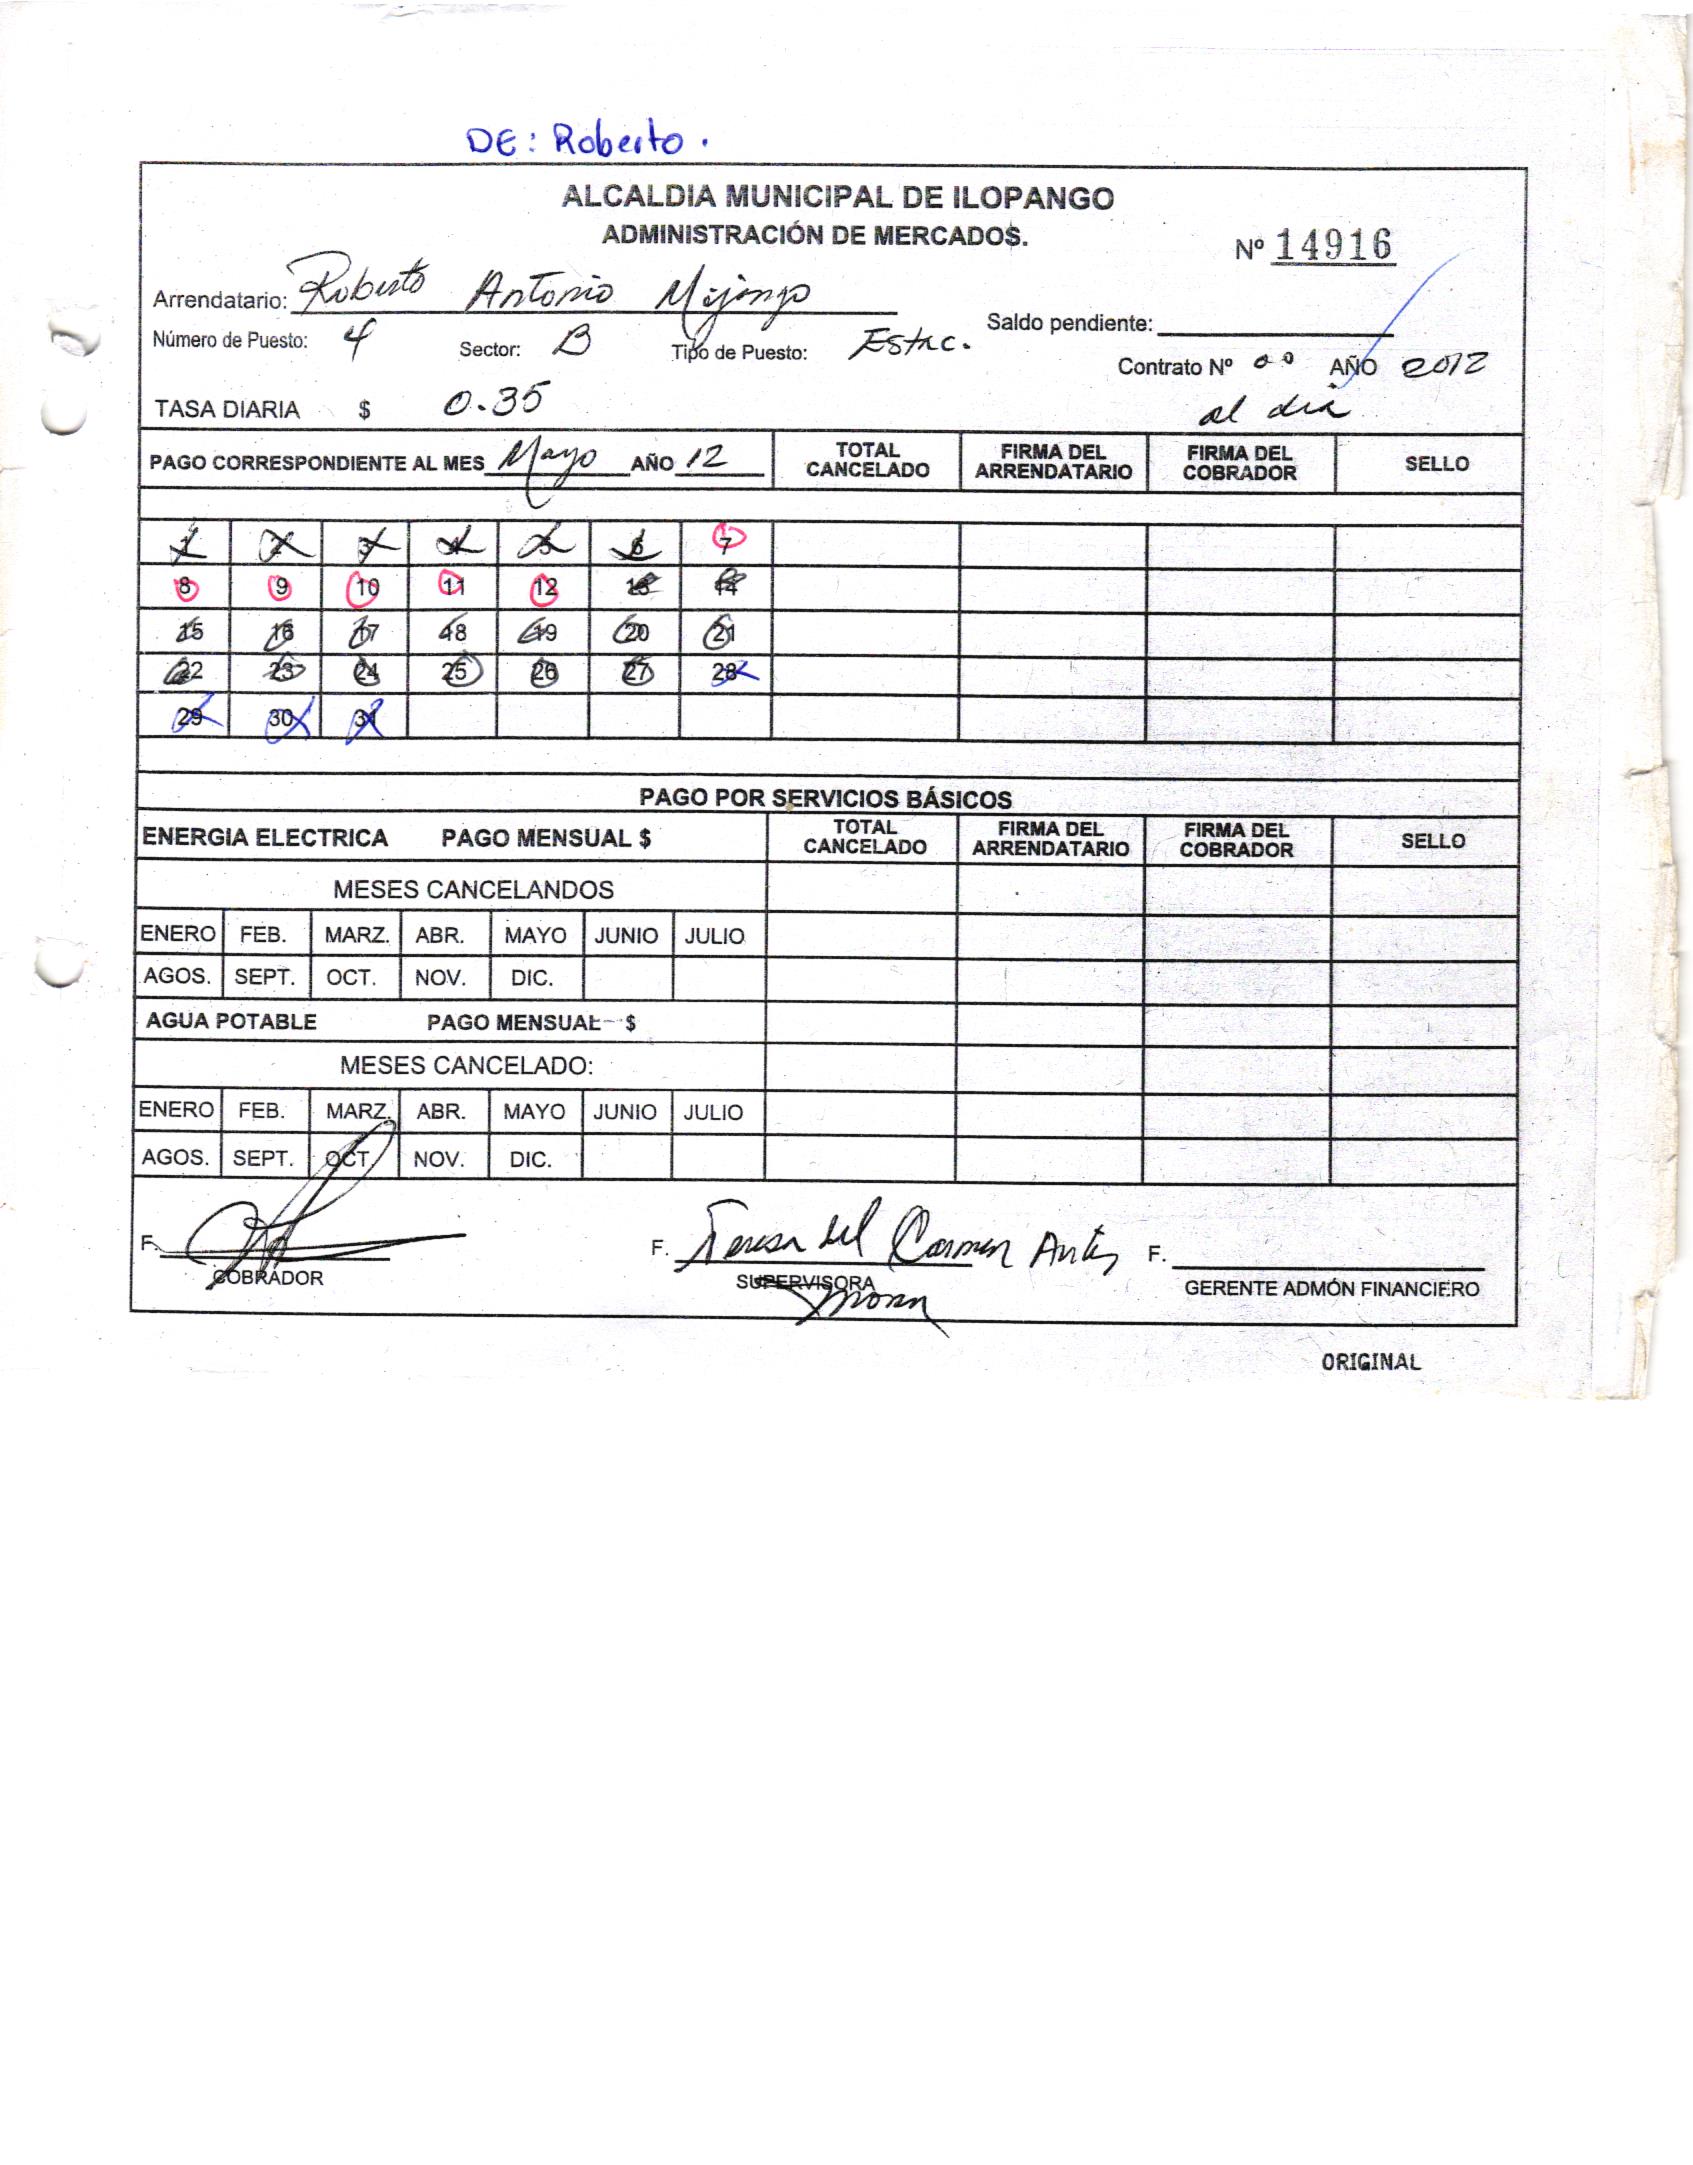 DE: Roberto.
ALCALDIA MUNICIPAL DE ILOPANGO
ADMINISTRACIÓN DE MERCADOS.
Nº 14916
Arrendatario: Roberto Antonio Mijango
Saldo pendiente:
Número de Puesto: 4 Sector: B Tipo de Puesto: Estac.
Contrato Nº 00 AÑO 2012
TASA DIARIA $ 0.35 al dia
PAGO CORRESPONDIENTE AL MES Mayo AÑO 12 TOTAL CANCELADO FIRMA DEL ARRENDATARIO FIRMA DEL COBRADOR SELLO
1 2 3 4 5 6 7
8 9 10 11 12 13 14
15 16 17 18 19 20 21
22 23 24 25 26 27 28
29 30 31
PAGO POR SERVICIOS BÁSICOS
ENERGIA ELECTRICA PAGO MENSUAL $ TOTAL CANCELADO FIRMA DEL ARRENDATARIO FIRMA DEL COBRADOR SELLO
MESES CANCELANDOS
ENERO FEB. MARZ. ABR. MAYO JUNIO JULIO
AGOS. SEPT. OCT. NOV. DIC.
AGUA POTABLE PAGO MENSUAL $
MESES CANCELADO:
ENERO FEB. MARZ. ABR. MAYO JUNIO JULIO
AGOS. SEPT. OCT NOV. DIC.
F. F. Teresa del Carmen F.
COBRADOR SUPERVISORA GERENTE ADMÓN FINANCIERO
ORIGINAL